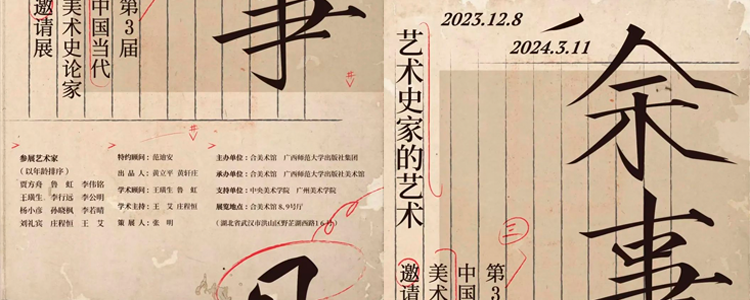 第3届
中国当代
美术史论家
邀请展
事
参展艺术家
（以年龄排序）
贾方舟 鲁 虹 李伟铭
王璜生 李行远 李公明
杨小彦 孙晓枫 李若晴
刘礼宾 庄程恒 王 艾
特约顾问：范迪安
出 品 人：黄立平 黄轩庄
学术顾问：王璜生 鲁 虹
学术主持：王 艾 庄程恒
策 展 人：张 明
主办单位：合美术馆 广西师范大学出版社集团
承办单位：合美术馆 广西师范大学出版社美术馆
支持单位：中央美术学院 广州美术学院
展览地点：合美术馆 8、9号厅
（湖北省武汉市洪山区野芷湖西路16号）
2023.12.8
2024.3.11
余事
艺术史家的艺术
三
第3
中国
美术
邀请